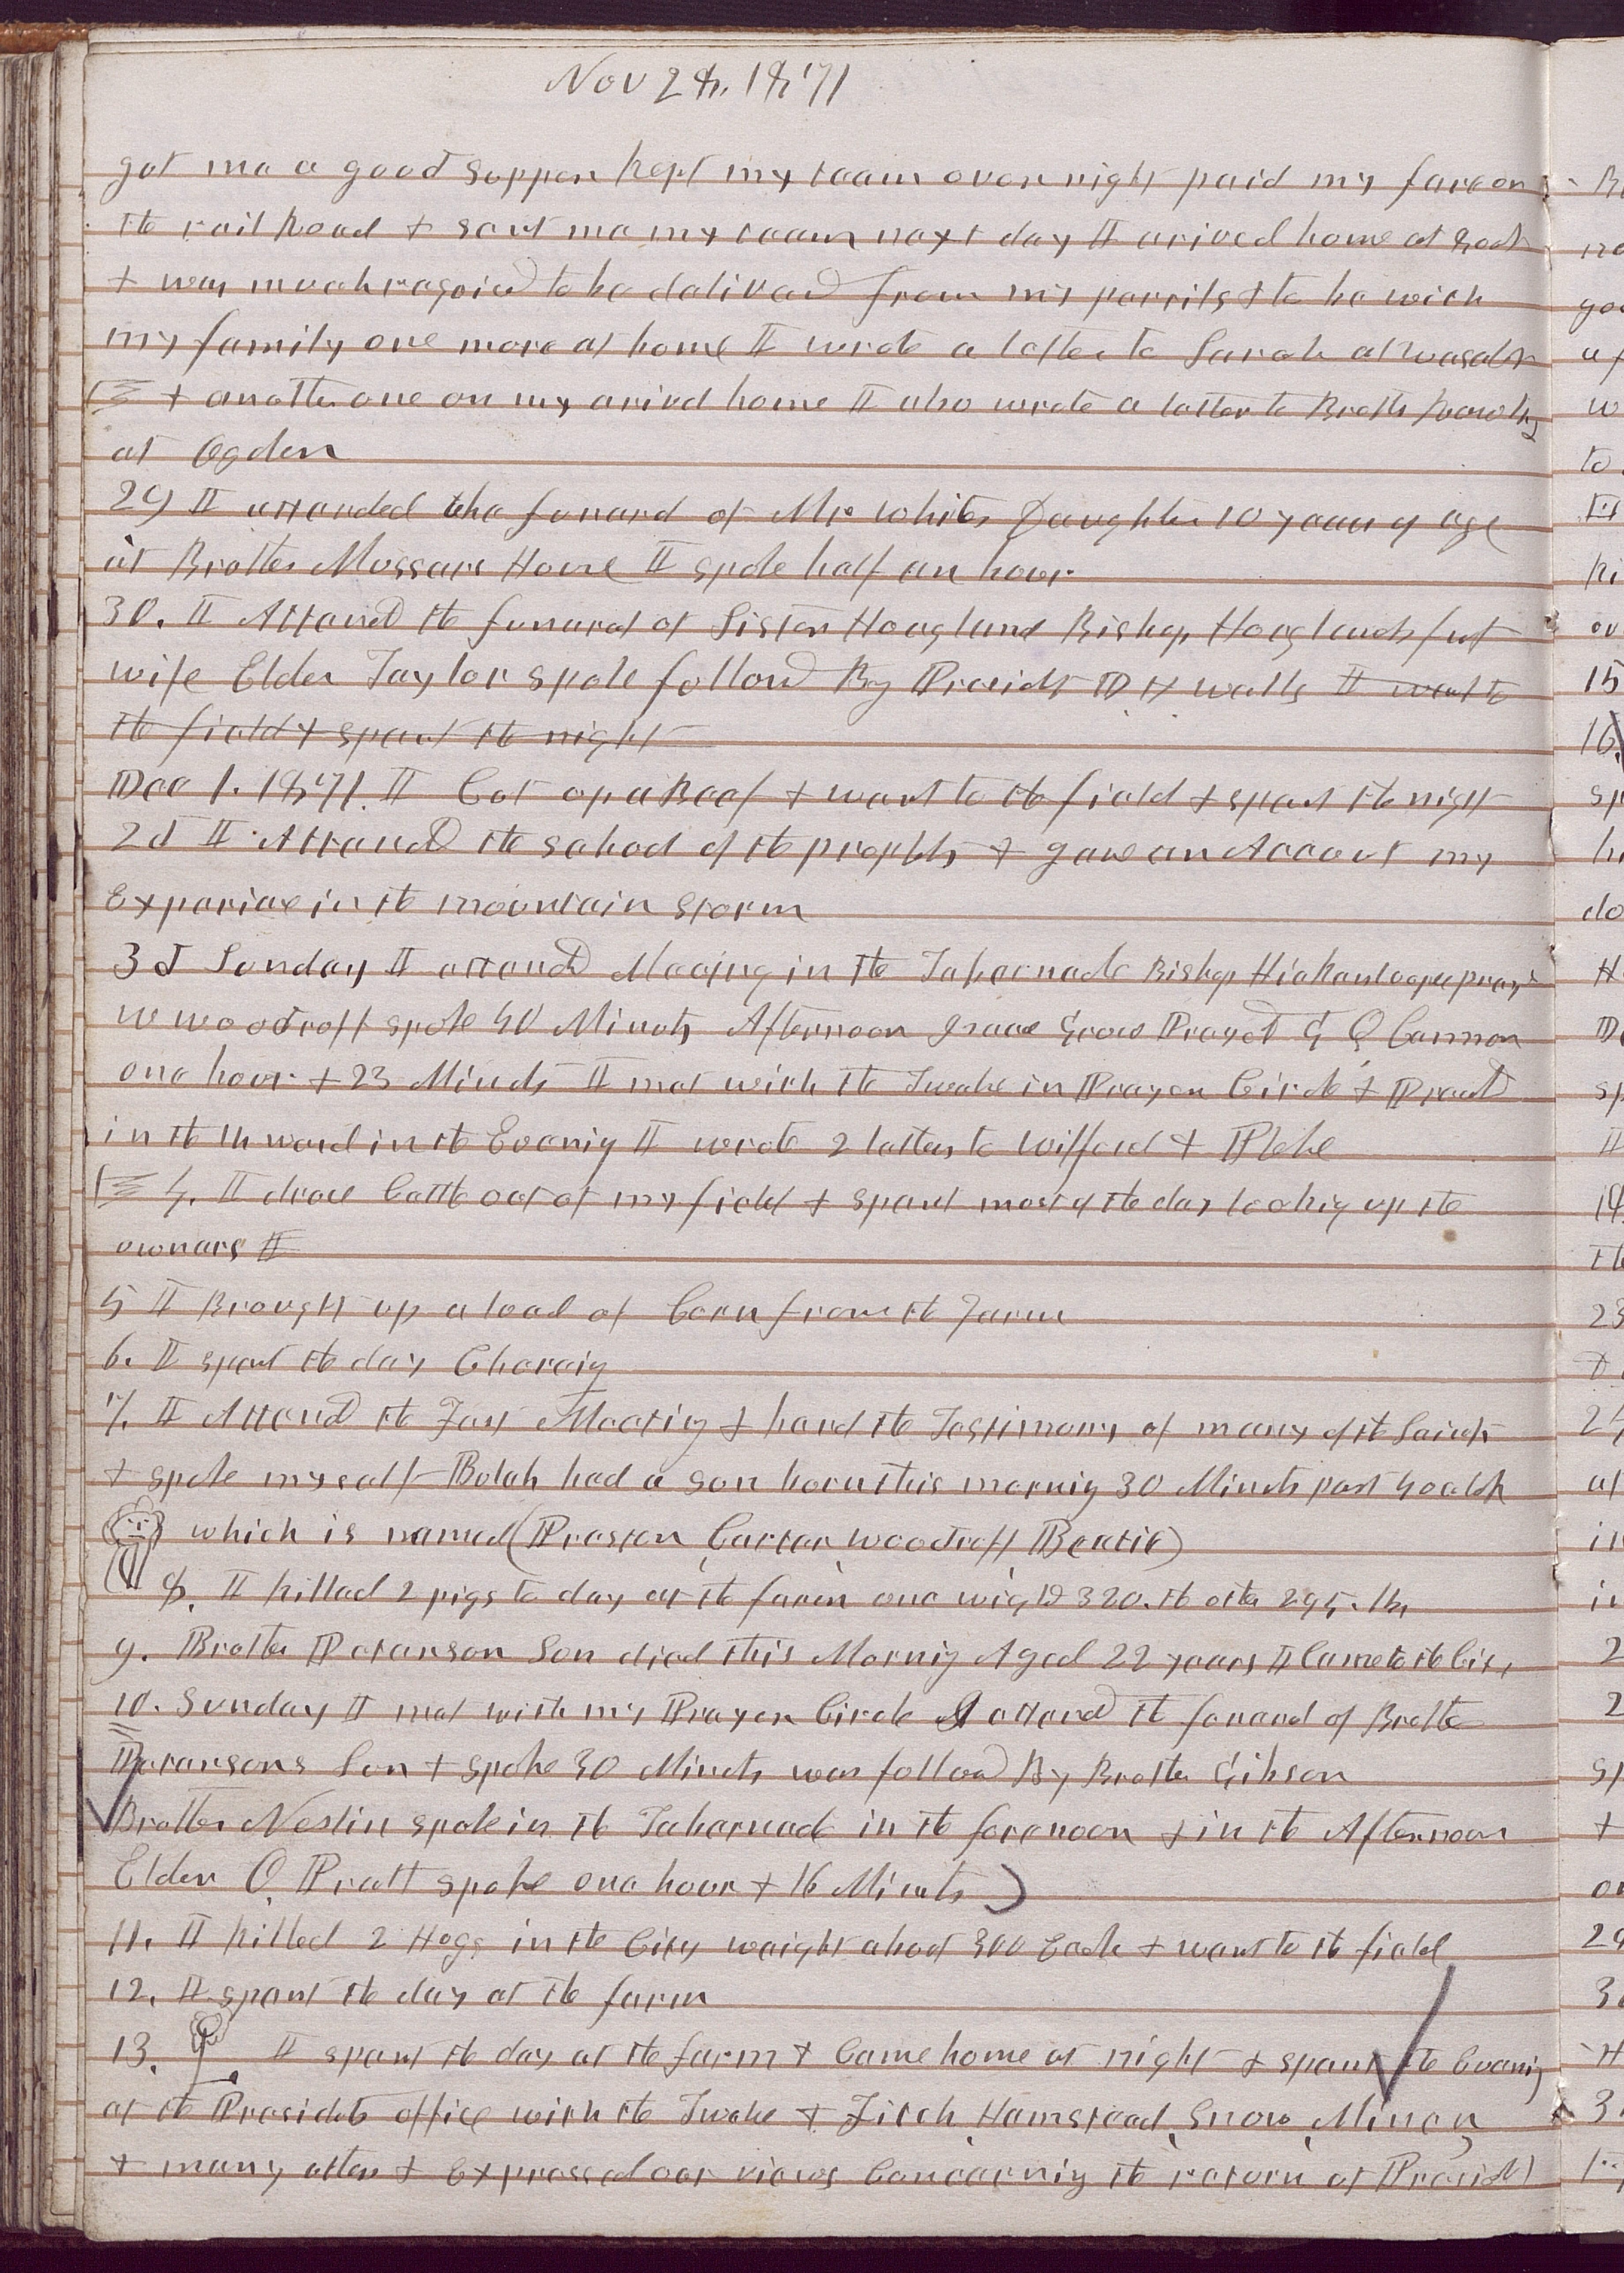 Nov 28, 1871
got me a good supper kept my team over night paid my fare on
the rail Road & sent me my team next day I arived home at 9 oclok
& was much regoiced to be delivered from my perrils & to be with
my family one more at home I wrote a letter to Sarah at
& another one on my arivel home I also wrote a letter to Brother
at Ogden
29 I attended the funeral of Mr Whites Daughter 10 years of age
at Brother Mussers House I spoke half an hour
30. I Attended the funeral of Sister Hoagland Bishop Hoaglands first
wife Elder Taylor spoke followed By Presidet D H Wells I went to
the field & spent the night
Dec 1. 1871. I Cut up a Beef & went to the field & spent the night
2d I Attended the school of the prophets & gave an Account my
Experiance in the mountain storm
3d Sunday I attended Meeting in the Tabernacle Bishop Hickenlooper prayed
W Woodruff spoke 40 Minuts Afternoon Isaac Grow Prayed G Q Cannon
one hour & 23 Minuts I met with the Twelve in Prayer Circle & Preached
in the 14 ward in the Evening I wrote 2 letters to Wilford & Phebe
4. I drove Cattle out of my field & spent most of the day looking up the
owners I
5 I Brought up a load of Corn from the Farm
6. I spent the day Choreing
7. I Attended the Fast Meeting & heard the Testimony of many of the Saints
& spoke myself Bulah had a son born this morning 30 Minuts past 4 oclok
which is named (Preston Carter Woodruff Beatie)
8. I killed 2 pigs to day at the farm one wighed 320. the other 295. lb,
9. Brother Peterson Son died this Morning Aged 22 years I Came to the City
10. Sunday I met with my Prayer Circle I attended the funeral of Brother
Petersons Son & spoke 30 Minuts was followed By Brother Gibson
Brother Neslin spoke in the Tabernacle in the forenoon & in the Afternoon
Elder O Pratt spoke one hour & 16 Minuts)
11. I killed 2 Hogs in the City weight about 300 Each & went to the field
12. I spent the day at the farm
13. I spent the day at the farm & Came home at night & spent the Evening
at the Presidets office with the Twelve & Fitch, Hamstead, Snow, Miner,
& many others & Expressed our views Concerning the return of Presidet